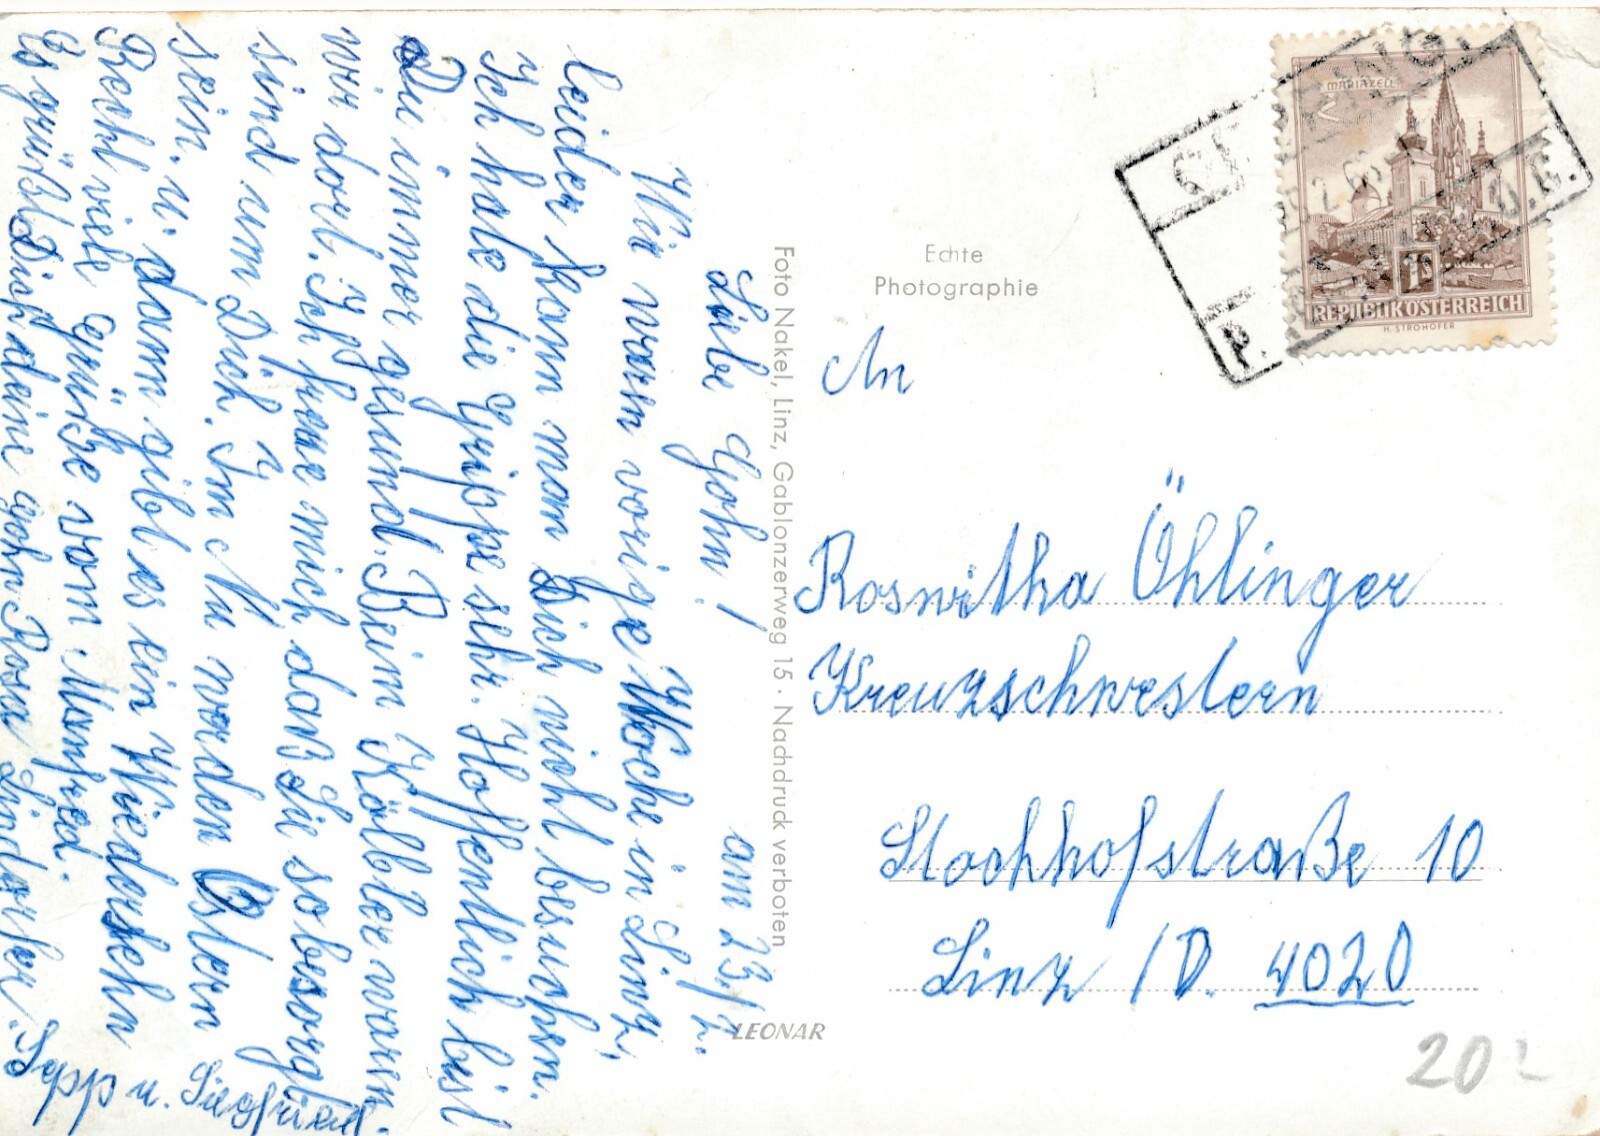 am 23./2.
Liebe Gohn!
Wir warn vorige Woche in Linz,
leider kann man Dich nicht besuchen.
Ich hate die Grippe sehr. Hoffentlich bist
Du immer gesund. Beim Kölbler warn
wir dort. Ich freue mich daß Sie so besorgt
sind um Dich. Im Nu warden Ostern
sein. u. dann gibt es ein Wiedersehn
Recht viele Grüße vom. Manfred.
Es grüßt Dich deine gohn Rosa Lindorfer.
Sepp u. Siegfried.
Foto Nakel, Linz, Gablonzerweg 15 · Nachdruck verboten
LEONAR
Echte
Photographie
MARIAZELL
1S
REPUBLIK ÖSTERREICH
H. STROHOFER
P.
O.Ö.
An
Roswitha Öhlinger
Kreuzschwestern
Stockhofstraße 10
Linz /D. 4020
20